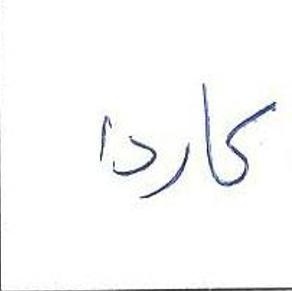 كاردا